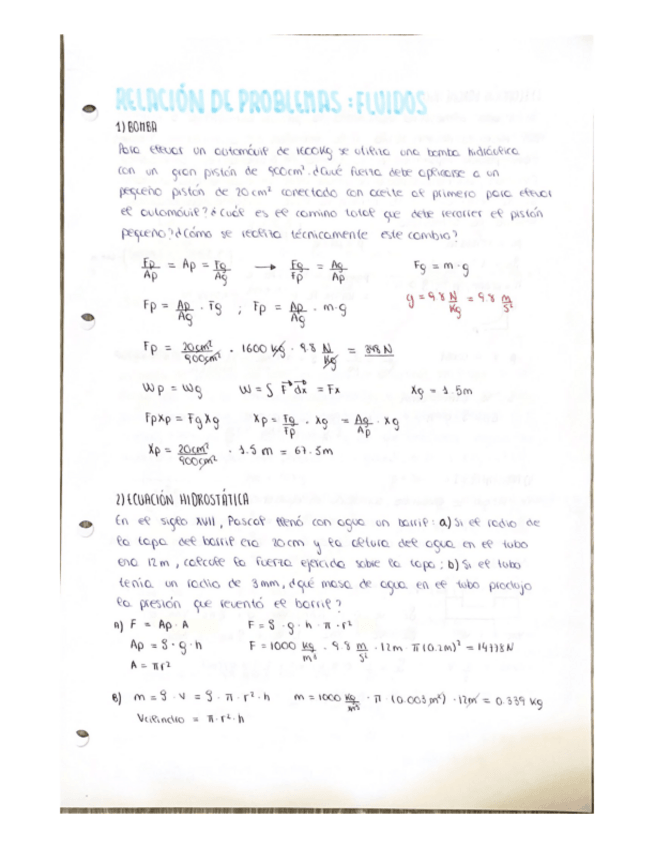 RELACIÓN DE PROBLEMAS : FLUIDOS
1) BOMBA
Para elevar un automóvil de 1600kg se utiliza una bomba hidráulica
con un gran pistón de 900cm². ¿Qué fuerza debe aplicarse a un
pequeño pistón de 20cm² conectado con aceite al primero para elevar
el automóvil? ¿Cuál es el camino total que debe recorrer el pistón
pequeño? ¿Cómo se realiza técnicamente este cambio?
Fp/Ap = Δp = Fg/Ag → Fg/Fp = Ag/Ap Fg = m·g
Fp = Ap/Ag · Fg ; Fp = Ap/Ag · m·g g = 9'8 N/kg = 9'8 m/s²
Fp = 20cm²/900cm² · 1600 kg · 9'8 N/kg = 348 N
Wp = Wg W = ∫ F dx = Fx Xg = 1.5m
FpXp = FgXg Xp = Fg/Fp · Xg = Ag/Ap · Xg
Xp = 20cm²/900cm² · 1.5 m = 67.5m
2) ECUACIÓN HIDROSTÁTICA
En el siglo XVII, Pascal llenó con agua un barril: a) Si el radio de
la tapa del barril era 20cm y la altura del agua en el tubo
era 12m, calcule la fuerza ejercida sobre la tapa; b) Si el tubo
tenía un radio de 3mm, ¿qué masa de agua en el tubo produjo
la presión que reventó el barril?
A) F = Δp · A F = ρ · g · h · π · r²
Δp = ρ · g · h F = 1000 kg/m³ · 9'8 m/s² · 12m · π (0.2m)² = 14778N
A = πr²
B) m = ρ · V = ρ · π · r² · h m = 1000 kg/m³ · π · (0.003m²) · 12m = 0.339 kg
Vcilindro = π·r²·h